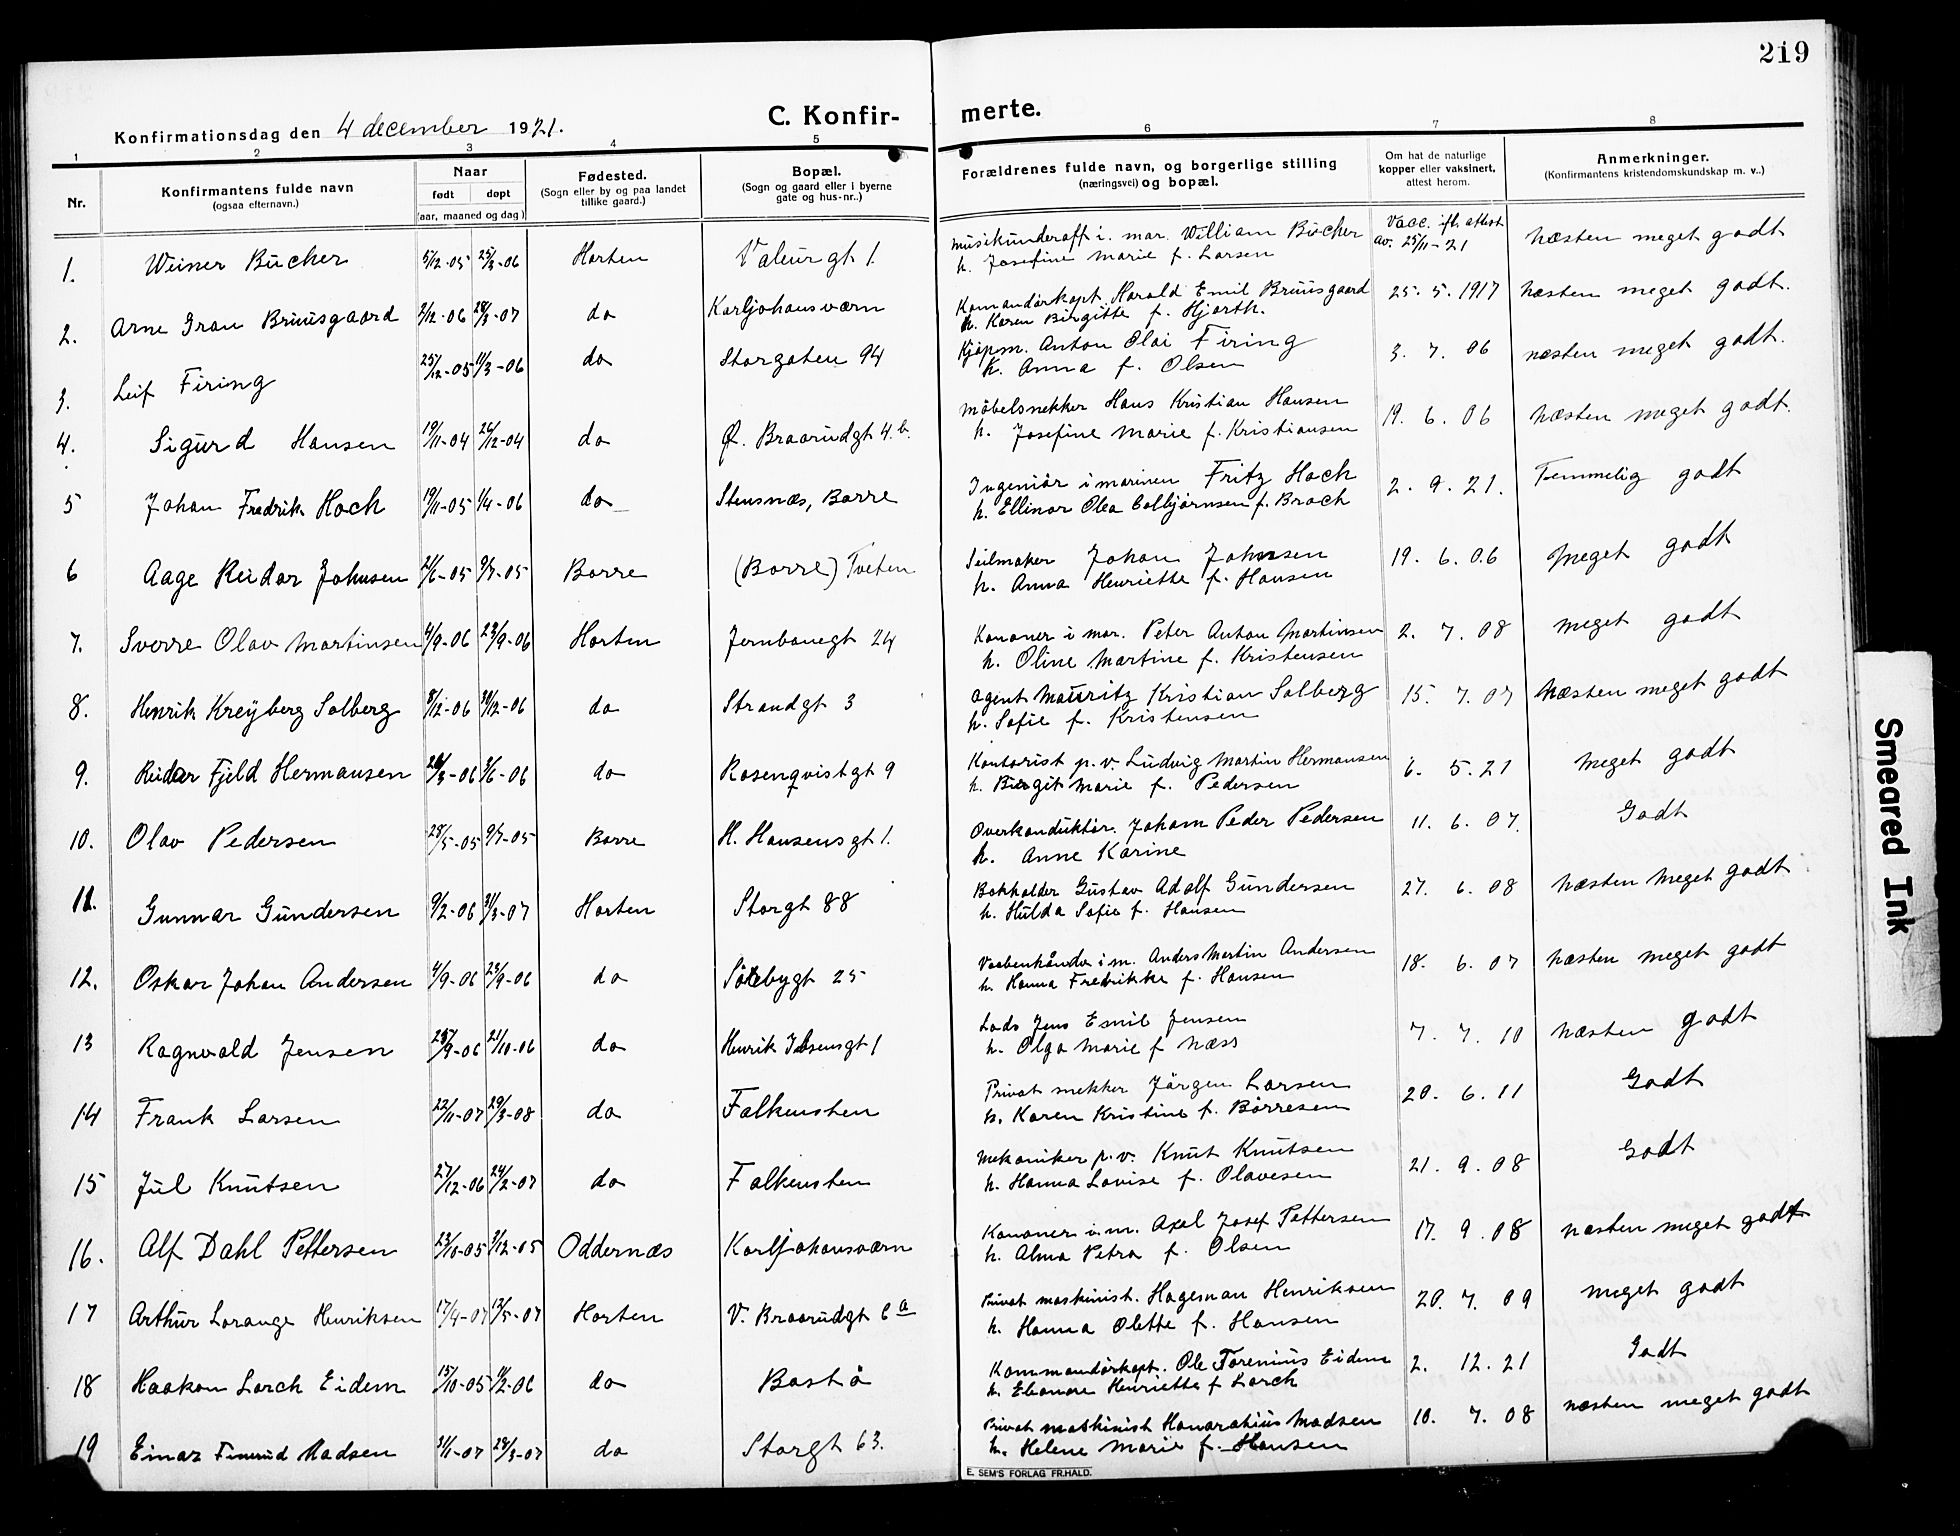 219
C. Konfir- merte.
Konfirmationsdag den 4 december 1921.
1 2 3 4 5 6 7 8
Nr.
Konfirmantens fulde navn
(ogsaa efternavn.)
Naar
født døpt
(aar, maaned og dag)
Fødested.
(Sogn eller by og paa landet
tillike gaard.)
Bopæl.
(Sogn og gaard eller i byerne
gate og hus-nr.)
Forældrenes fulde navn, og borgerlige stilling
(næringsvei) og bopæl.
Om hat de naturlige
kopper eller vaksinert,
attest herom.
Anmerkninger.
(Konfirmantens kristendomskundskap m. v..)
1. Weiner Bücher 5/12-05 25/3-06 Horten Valeur gt 1. musikunderoff i. mar. William Bücher Vacc. ifl. attest
h. Josefine Marie f. Larsen av. 25/11-21 næsten meget godt
2. Arne Gran Bruusgaard 2/12-06 28/3-07 do Karljohansværn Komandørkapt. Harald Emil Bruusgaard 25. 5. 1917 næsten meget godt.
h. Karen Birgitte f. Hjorth.
3. Leif Firing 25/12-05 11/3-06 do Storgaten 94 Kjøpm. Anton Olai Firing 3. 7. 06 næsten meget godt.
h. Anna f. Olsen
4. Sigurd Hansen 19/11-04 26/12-04 do Ø. Braarudgt 4.b. Møbelsnekker Hans Kristian Hansen 19. 6. 06 næsten meget godt.
h. Josefine Marie f. Kristiansen
5 Johan Fredrik Hoch 19/11-05 1/4-06 do Stensnæs, Borre Ingeniør i marinen Fritz Hoch 2. 9. 21. Temmelig godt
h. Ellinor Olea Colbjørnsen f. Broch
6 Aage Reidar Johnsen 21/6-05 9/7-05 Borre (Borre) Tveten Seilmaker Johan Johnsen 19. 6. 06 meget godt
h. Anna Henriette f. Hansen
7. Sverre Olav Martinsen 4/9-06 23/9-06 Horten Jernbanegt 24 Kanoner i mar. Peter Anton Martinsen 2. 7. 08 meget godt
h. Oline Martine f. Kristensen
8. Henrik Kreyberg Solberg 8/12-06 30/12-06 do Strandgt 3 Agent Mauritz Kristian Solberg 15. 7. 07 Næsten meget godt
h. Sofie f. Kristensen
9. Reidar Fjeld Hermansen 26/3-06 3/6-06 do Rosenqvistgt 9 Kontorist p.v. Ludvig Martin Hermansen 6. 5. 21 meget godt
h. Birgit Marie f. Pedersen
10. Olav Pedersen 28/5-05 9/7-05 Borre H. Hansensgt 1. Overkonduktør. Johan Peder Pedersen 11. 6. 07. Godt
h. Anne Karine
11. Gunnar Gundersen 9/2-06 31/3-07 Horten Storgt 88 Bokholder Gustav Adolf Gundersen 27. 6. 08 Næsten meget godt
h. Hulda Sofie f. Hansen
12. Oskar Johan Andersen 4/9-06 23/9-06 do Søebygt 25 Anders Martin Andersen 18. 6. 07 næsten meget godt
h. Hanna Fredrikke f. Hansen
13 Ragnvald Jensen 25/9-06 21/10-06 do Henrik Ibsensgt 1 Lods Jens Emil Jensen 7. 7. 10 næsten godt
h. Olga Marie f Næss
14 Frank Larsen 22/11-07 29/3-08 do Falkensten Privat snekker Jørgen Larsen 20. 6. 11 Godt
h. Karen Kristine f. Børresen
15 Jul Knutsen 27/12-06 24/2-07 do Falkensten Mekaniker p.v. Knut Knutsen 21. 9. 08 Godt
h. Hanna Lovise f. Olavesen
16. Alf Dahl Pettersen 23/10-05 3/12-05 Oddernæs Karljohansværn Kanoner i.m. Axel Josef Pettersen 17. 9. 08 næsten meget godt
h. Alma Petra f. Olsen
17 Arthur Lorange Henriksen 17/4-07 12/5-07 Horten V. Braarudgt 6a Privat maskinist. Hageman Henriksen 20. 7. 09 meget godt
h. Hanna Olette f. Hansen
18 Haakon Lorch Eidem 15/10-05 11/2-06 do Bastø Kommandørkapt. Ole Torenius Eidem 2. 12. 21 Godt
h. Eleonore Henriette f Lorch
19 Einar Madsen 3/1-07 28/3-07 do Storgt 63. Privat maskinist Honoratius Madsen 10. 7. 08 næsten meget godt
h. Helene Marie f. Hansen
E. SEM'S FORLAG FR.HALD.
Smeared Ink